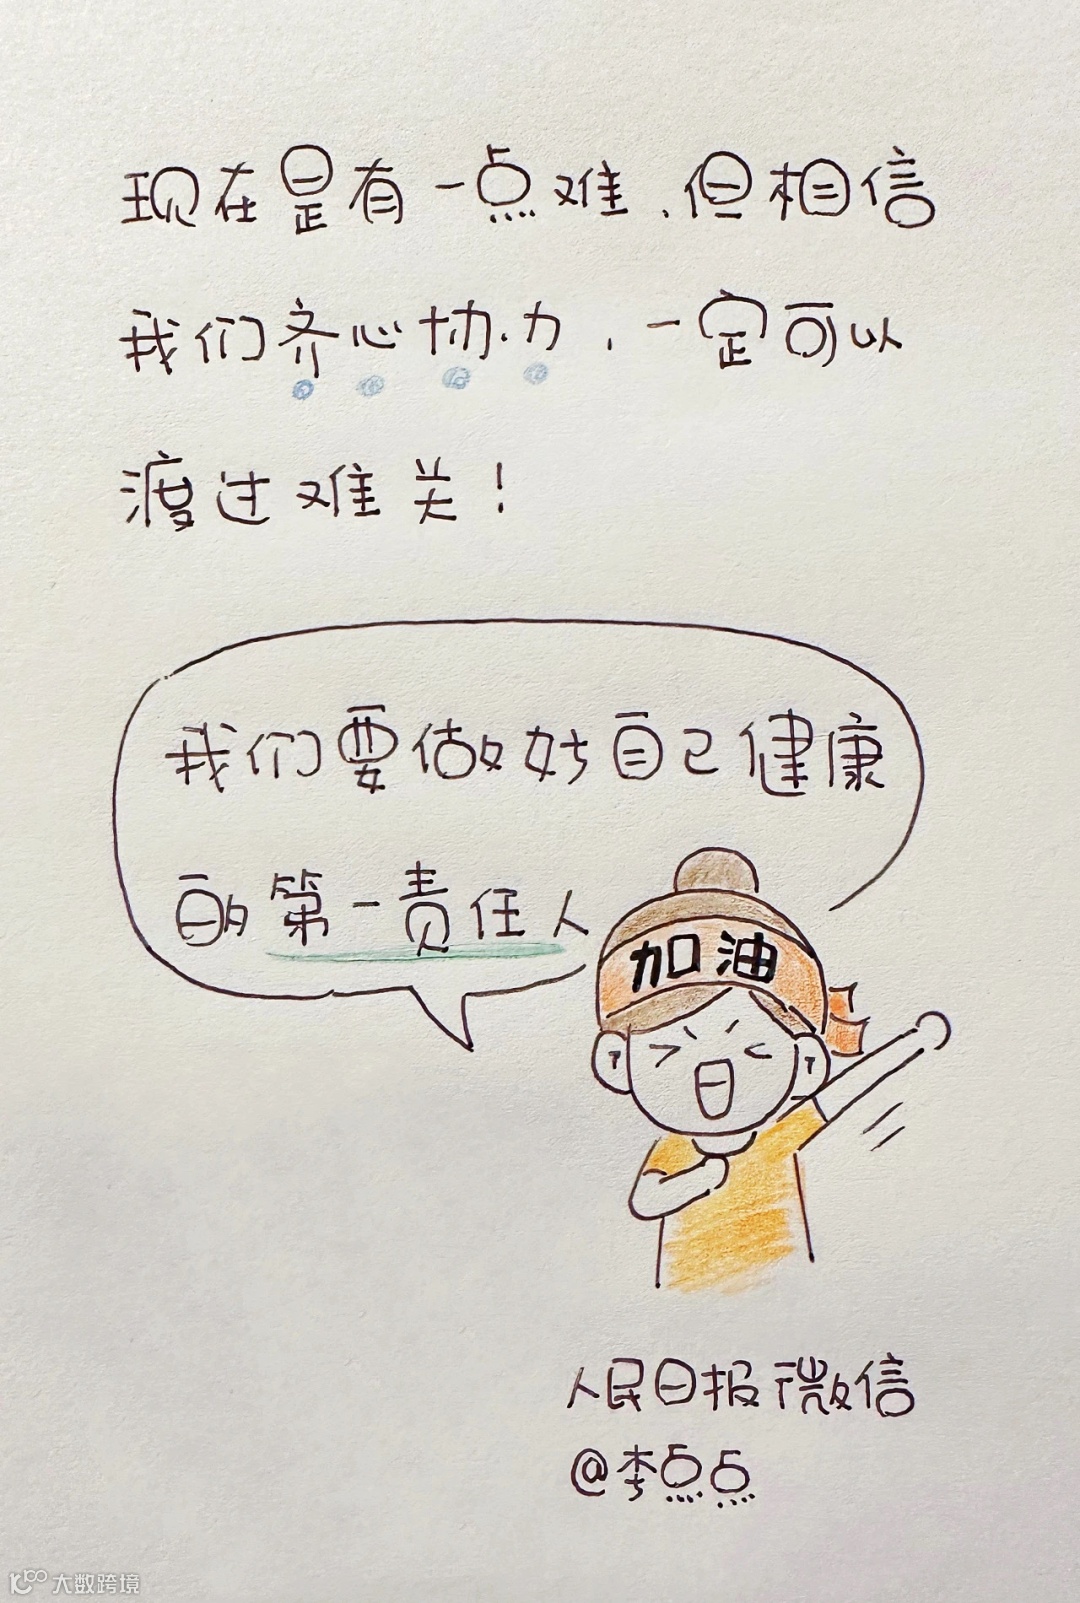 现在是有一点难，但相信
我们齐心协力，一定可以
渡过难关！
我们要做好自己健康
的第一责任人
加油
人民日报微信
@李点点
大数跨境